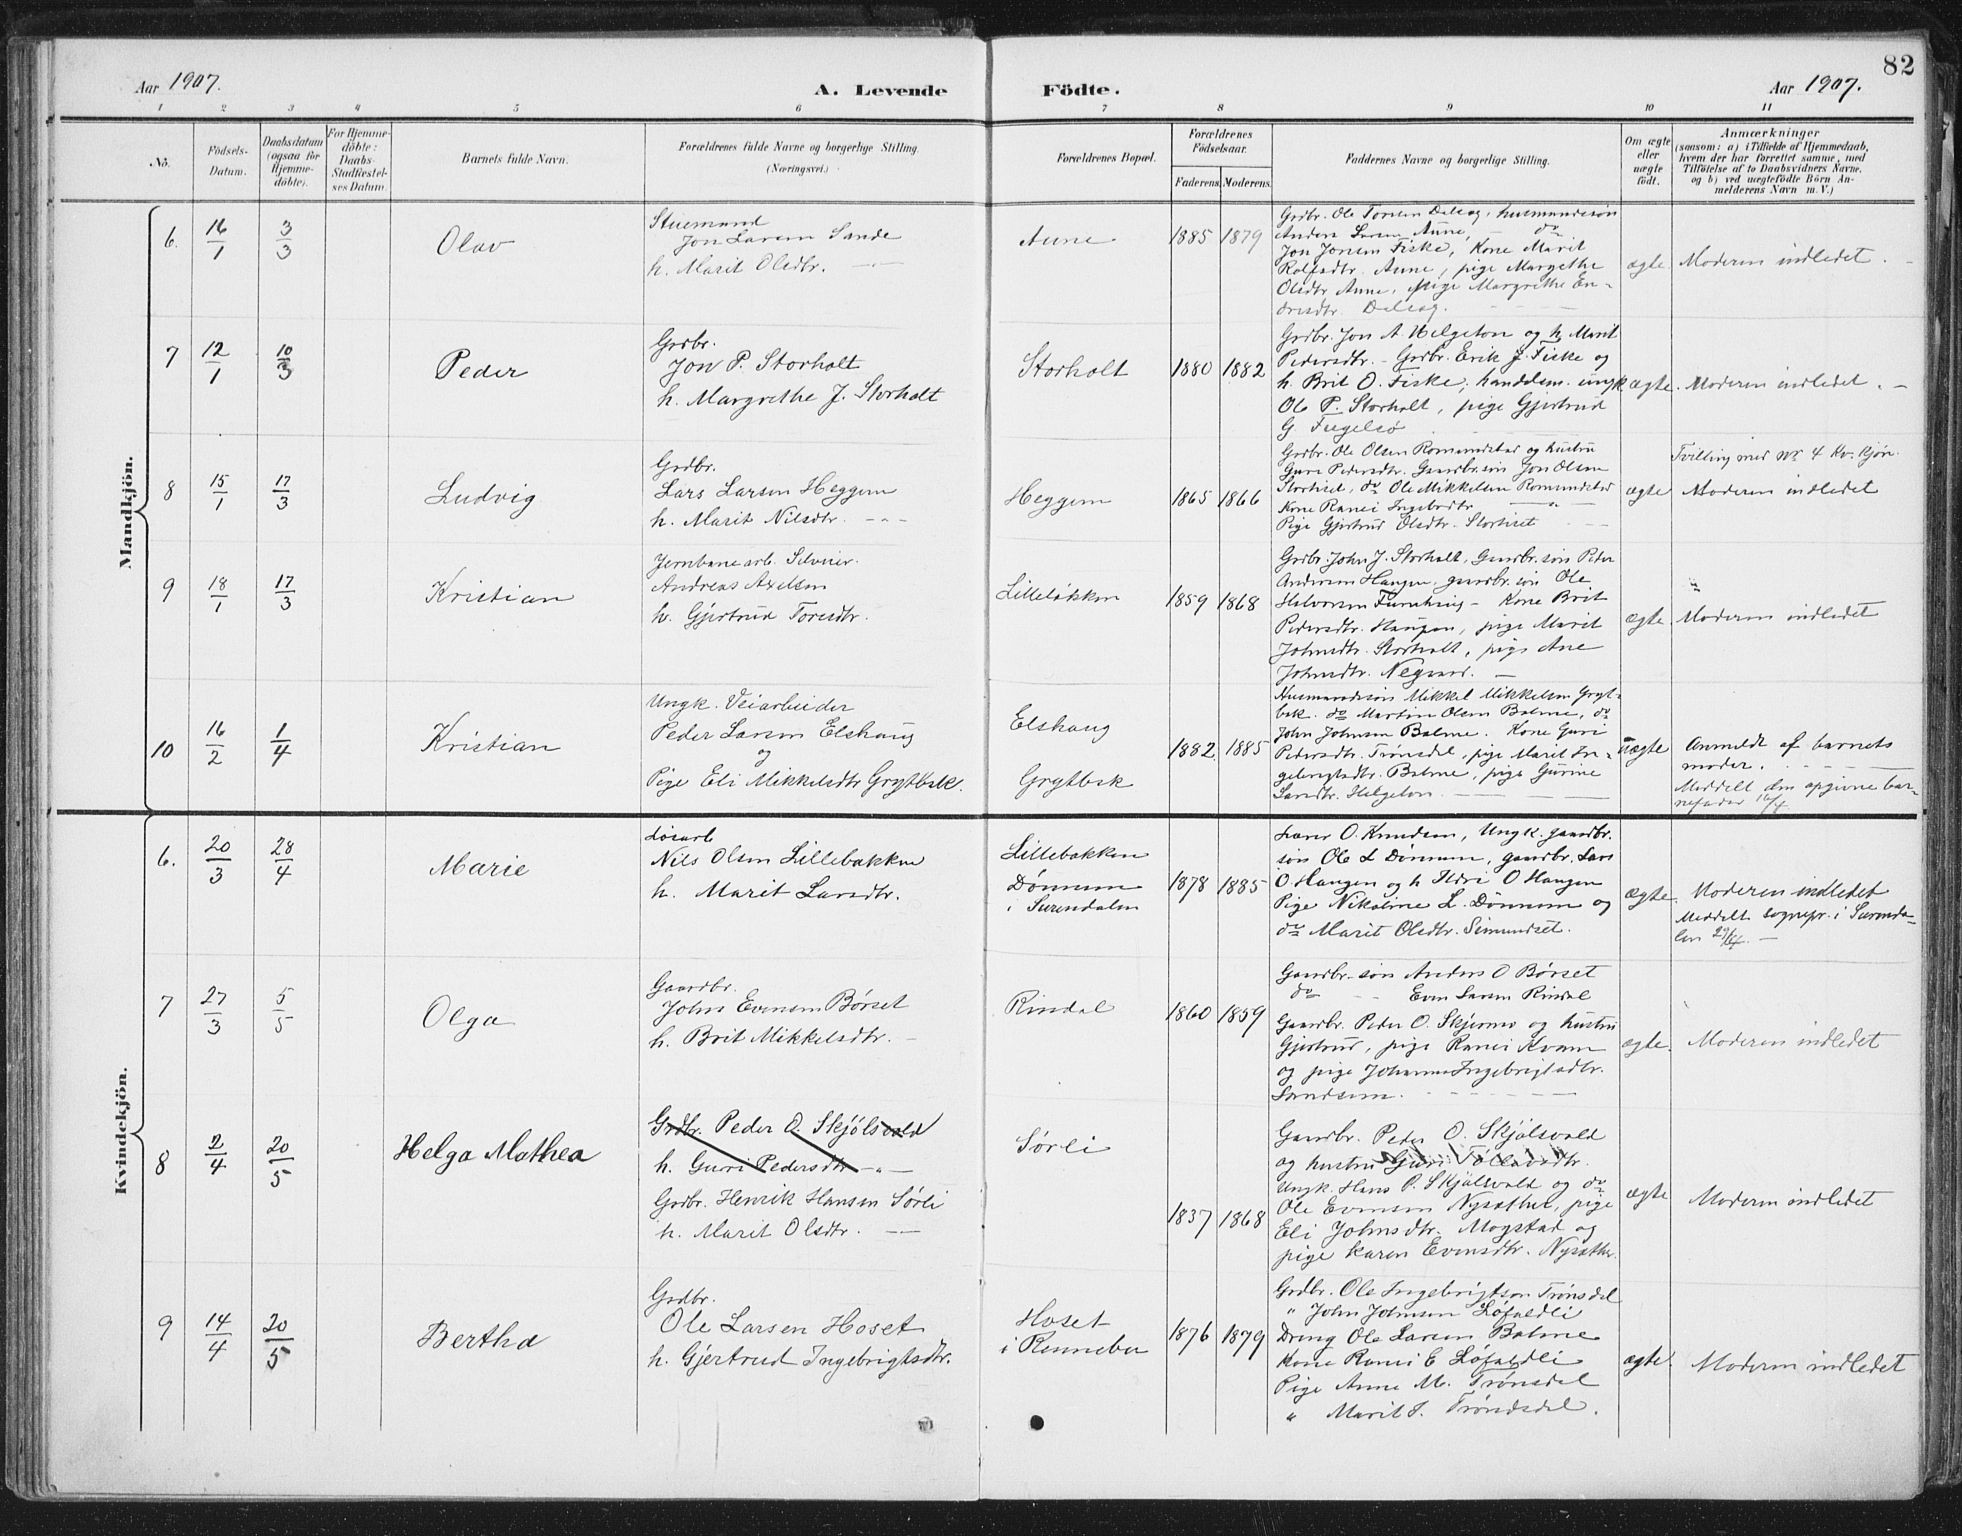 82
Aar 1907.
A. Levende Födte.
Aar 1907.
1 2 3 4 5 6 7 8 9 10 11
No.
Födsels-
Datum.
Daabsdatum
(ogsaa for
Hjemme-
döbte).
For Hjemme-
döbte:
Daabs-
Stadfæstel-
ses Datum.
Barnets fulde Navn.
Forældrenes fulde Navne og borgerlige Stilling.
(Næringsvei.)
Forældrenes Bopæl.
Forældrenes
Födselsaar.
Faderens. Moderens.
Faddernes Navne og borgerlige Stilling.
Om ægte
eller
uægte
födt.
Anmærkninger
(saasom: a) i Tilfælde af Hjemmedaab,
hvem der har forrettet samme, med
Tilföielse af to Daabsvidners Navne.
og b) ved uægtefödte Börn An-
melderens Navn m. V.)
Mandkjön.
6. 16/1 3/3
Olav
Stuemand
Jon Larsen Sande
h. Marit Olsdtr. —
Aune
1885 1879
Grdbr. Ole Torsen Dalseg, husmandssøn
Anders Larsen Aune, — do
Jon Jonsen Fiske, Kone Marit
Rolfsdtr. Aune, pige Margethe
Olsdtr Aune, pige Margrethe En-
dresdtr. Dalseg.
ægte
Moderen indledet. -
7 12/1 10/3
Peder
Grdbr.
Jon P. Storholt
h. Margrethe J. Storholt
Storholt
1880 1882
Grdbr. Jon A. Helgeton og h. Marit
Pedersdtr. - Grdbr. Erik J. Fiske og
h. Brit O. Fiske; handelsm. ungk.
Ole P. Storholt, pige Gjertrud
G. Fugelsø
ægte.
Moderen indledet. —
8 15/1 17/3
Ludvig
Grdbr.
Lars Larsen Heggem
h. Marit Nilsdtr. - - -
Heggem
1865 1866
Grdbr. Ole Olsen Romundstad og hustru
Guri Pedersdtr. Gaardbr.søn Jon Olsen
Stortiset, do Ole Mikkelsen Romundstad
Kone Ranei Ingebr.dtr — "
Pige Gjertrud Olsdtr. Stortiset
ægte
Tvilling med No 4 Kv. kjøn.
Moderen indledet
9 18/1 17/3
Kristian
Jernbanearb. Selveier.
Andreas Axelsen
h. Gjertrud Toresdtr.
Lilleløkken
1859 1868
Grdbr. John J. Storholt, Gaardbr.søn Peder
Andersen Haugen, gaardbr.søn Ole
Halvorsen Furuhaug - Kone Brit
Pedersdtr. Haugen, pige Marit
Johnsdtr. Storholt, pige Ane
Johnsdtr. Negaard. —
ægte.
Moderen indledet
10 16/2 1/4
Kristian
Ungk. Veiarbeider
Peder Larsen Elshaug
og
Pige Eli Mikkelsdtr Grytbak.
Elshaug
Grytbak
1882 1885
Husmandssøn Mikkel Mikkelsen Gryt-
bak. do Martin Olsen Bolme, do
John Johnsen Bolme. Kone Guri
Pedersdtr. Trønsdal, pige Marit In-
gebrigtsdtr. Bolme, pige Gurine
Larsdtr. Helgeton.
uægte
Anmeldt af barnets
moder.
Meddelt den opgivne bar-
nefader 16/4
Kvindekjön.
6. 20/3 28/4
Marie
Løsarb
Nils Olsen Lillebakken
h. Marit Larsdtr.
Lillebakken
Dønnum
i Surendalen
1878 1885
Lærer O. Knudsen, Ungk. gaardbr.
søn Ole L Dønnum, gaardbr. Lars
O Haugen og h Ildri O Haugen
Pige Nikoline L. Dønnum og
do Marit Olsdtr. Simundset.
ægte.
Moderen indledet
Meddelt sognepr. i Surenda-
len 29/4. —
7 27/3 5/5
Olga
Gaardbr.
John Evensen Børset
h. Brit Mikkelsdtr. -
Rindal
1860 1859
Gaardbr. søn Anders O Børset
do - - Even Larsen Rindal
Gaardbr. Peder O. Skjermo og hustru
Gjertrud, pige Ranei Kvam
og pige Johanna Ingebrigtsdtr.
Landsem.
ægte.
Moderen indledet
8 2/4 20/5
Helga Mathea
Grdbr. Peder O. Skjølsvold
h. Guri Pedersdtr - " -
Grdbr. Henrik Hansen Sørli
h. Marit Olsdtr. —
Sørli
1837 1868
Gaardbr. Peder O. Skjølsvold
og hustru Guri Tollevsdtr.
Ungk. Hans P. Skjølsvold og do
Ole Evensen Nysæther, pige
Eli Johnsdtr. Mogstad og
pige Karen Evensdtr. Nysæther.
ægte
Moderen indledet
9 14/4 20/5
Bertha
Grdbr.
Ole Larsen Hoset
h. Gjertrud Ingebrigtsdtr.
Hoset
i Rennebu
1876 1879
Grdbr. Ole Ingebrigtson Trønsdal
" John Johnsen Løfaldli
Dreng Ole Larsen Bolme
Kone Ranei E Løfaldli
Pige Anne M. Trønsdal
" Marit I. Trøndsdal.
ægte.
Moderen indledet